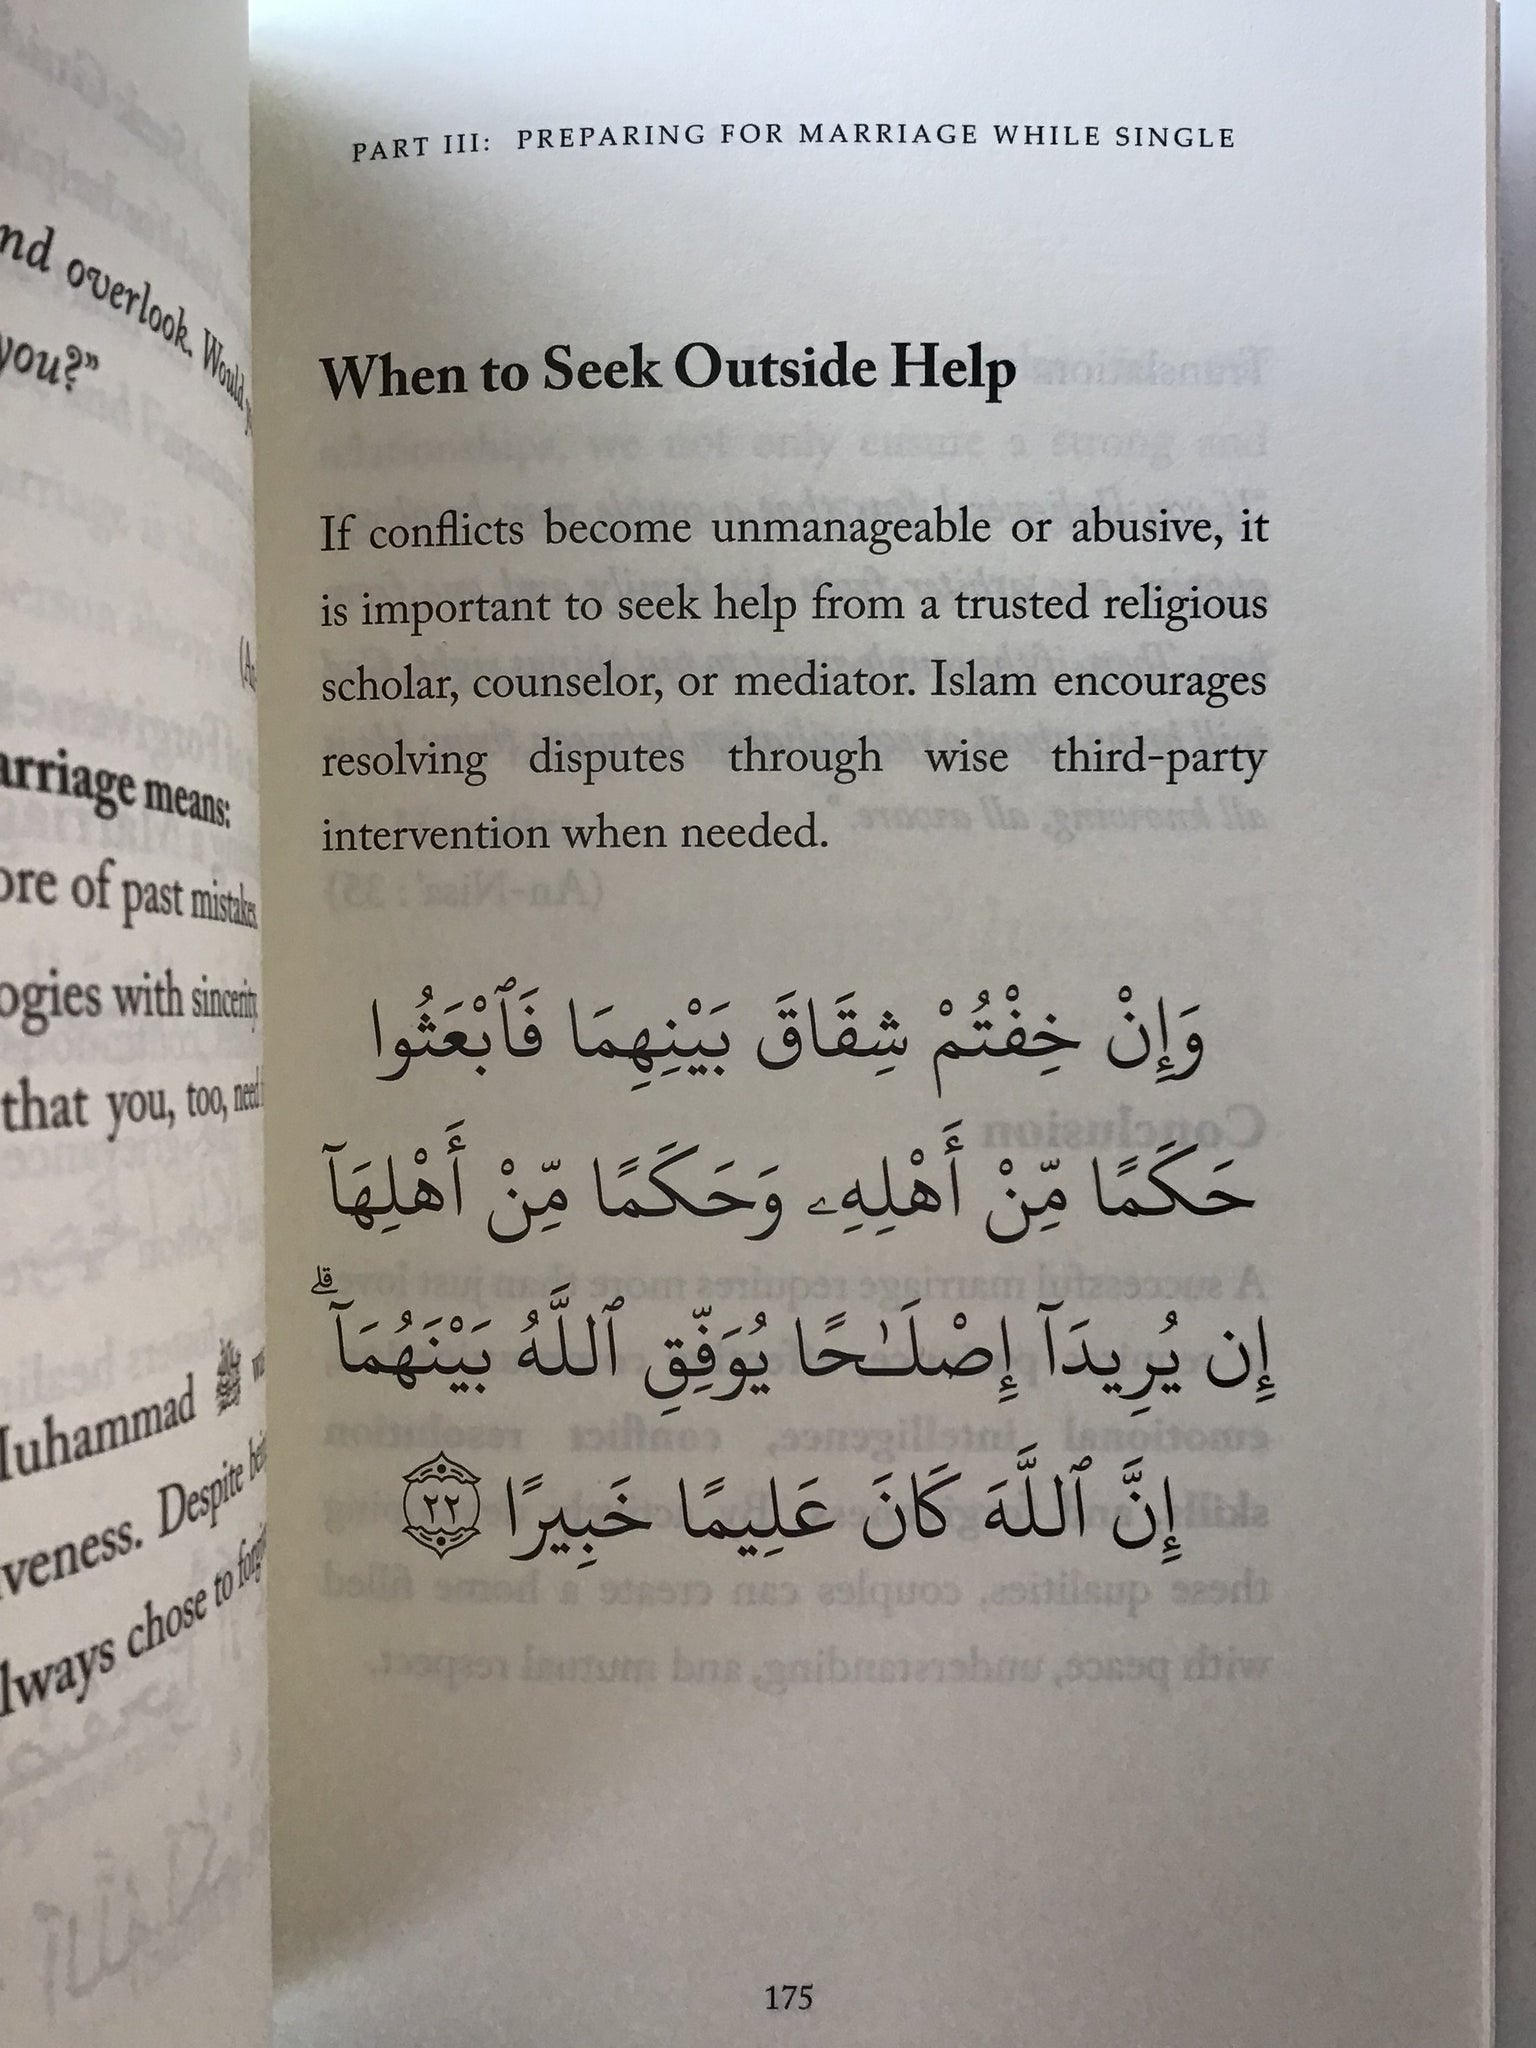 nd overlook. Would
you?"
arriage means:
ore of past mistakes
ogies with sincerity
that you, too, need
Muhammad ﷺ
iveness. Despite
lways chose to
PART III: PREPARING FOR MARRIAGE WHILE SINGLE
When to Seek Outside Help
If conflicts become unmanageable or abusive, it
is important to seek help from a trusted religious
scholar, counselor, or mediator. Islam encourages
resolving disputes through wise third-party
intervention when needed.
وَإِنْ خِفْتُمْ شِقَاقَ بَيْنِهِمَا فَٱبْعَثُوا
حَكَمًا مِّنْ أَهْلِهِۦ وَحَكَمًا مِّنْ أَهْلِهَآ
إِن يُرِيدَآ إِصْلَـٰحًا يُوَفِّقِ ٱللَّهُ بَيْنَهُمَآ ۗ
إِنَّ ٱللَّهَ كَانَ عَلِيمًا خَبِيرًا ٢٢
175